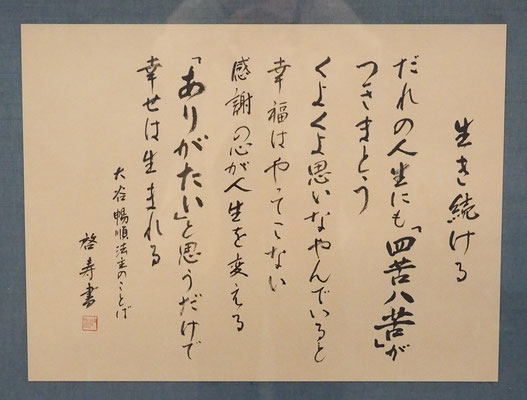 生き続ける
だれの人生にも「四苦八苦」が
つきまとう
くよくよ思いなやんでいると
幸福はやってこない
感謝の心が人生を変える
「ありがたい」と思うだけで
幸せは生まれる
大谷暢順法主のことば
啓寿書